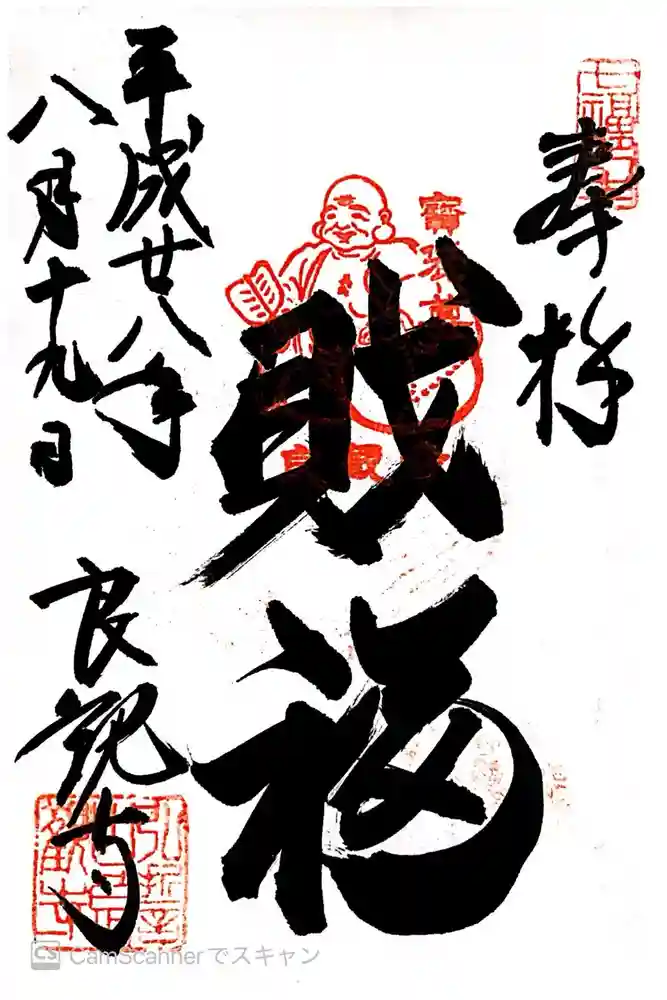 奉拝
財福
平成廿八年
八月十九日
良観寺
CamScannerでスキャン